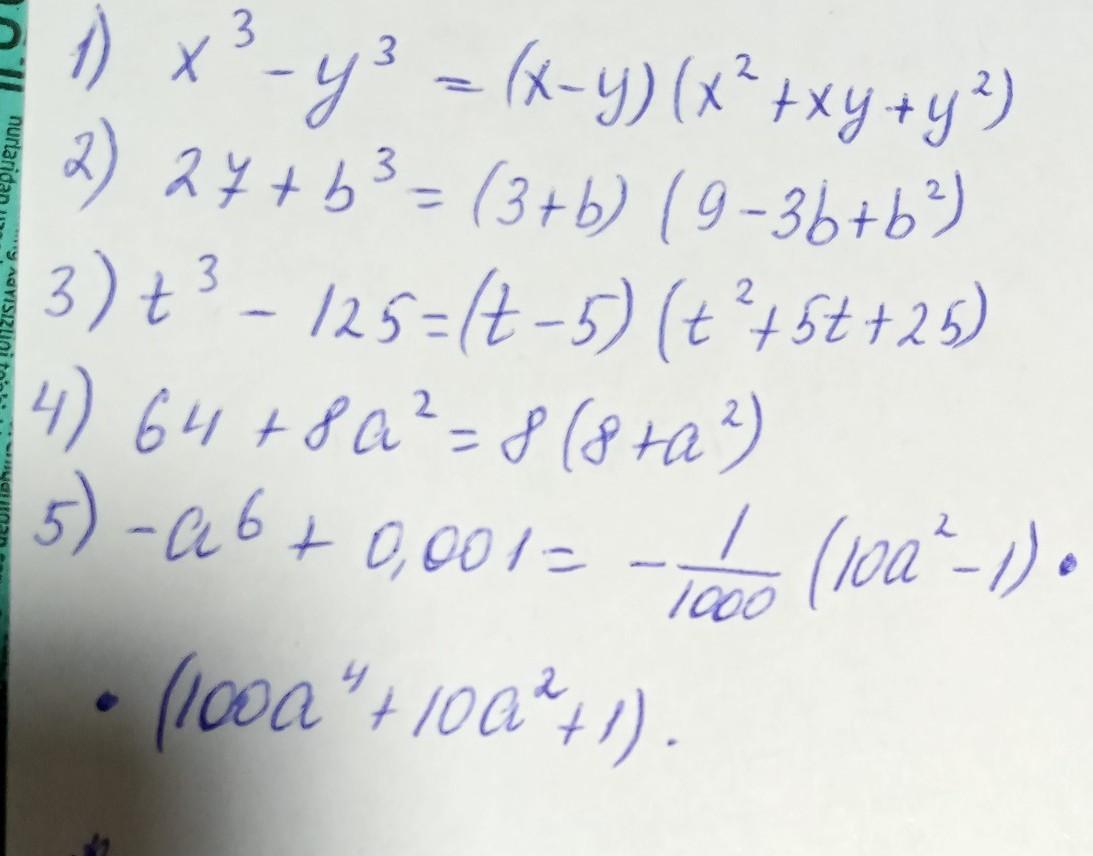 1) x³ - y³ = (x-y)(x²+xy+y²)
2) 27 + b³ = (3+b) (9-3b+b²)
3) t³ - 125 = (t-5) (t²+5t+25)
4) 64 + 8a² = 8(8+a²)
5) -a⁶ + 0,001 = -1/1000 (10a²-1) •
• (100a⁴+10a²+1).